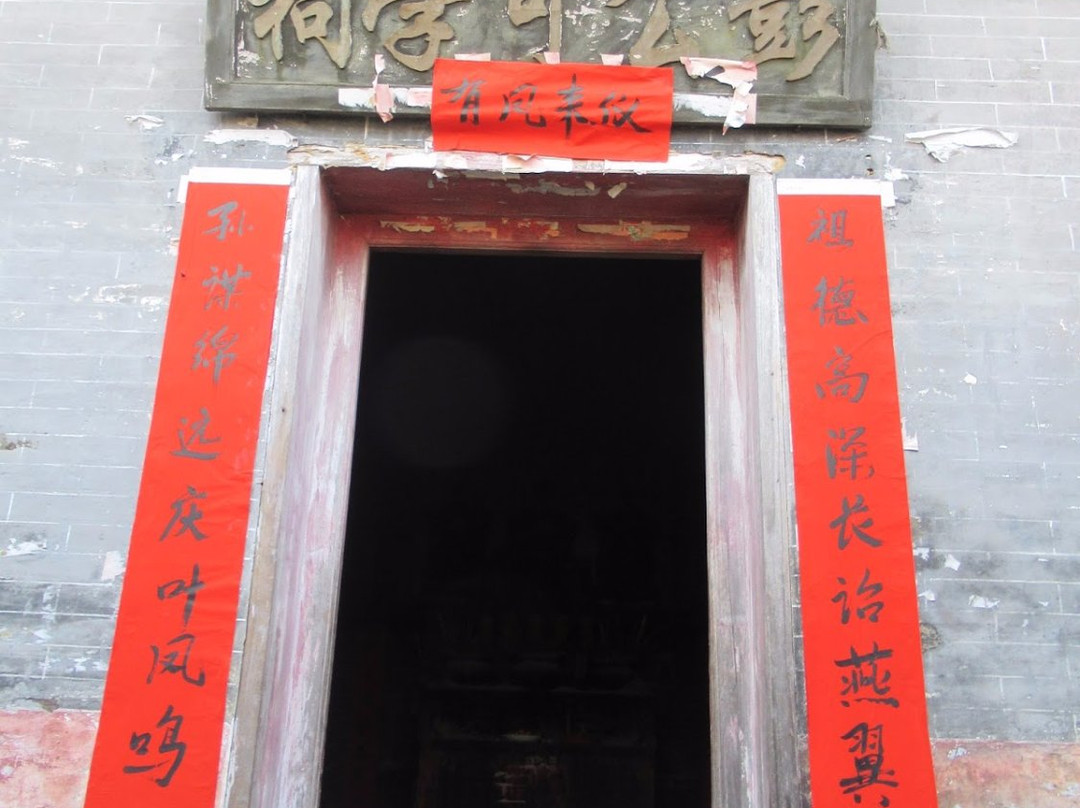 彭公学祠
有凤来仪
祖德高深长诒燕翼
孙谋绵远庆叶凤鸣